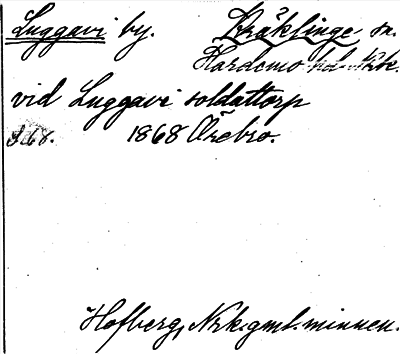 Luggavi by. Kräklinge sn.
Hardemo hd. Nke.
vid Luggavi soldattorp
868. 1868 Örebro.
Hofberg, Nrk. gml. minnen.